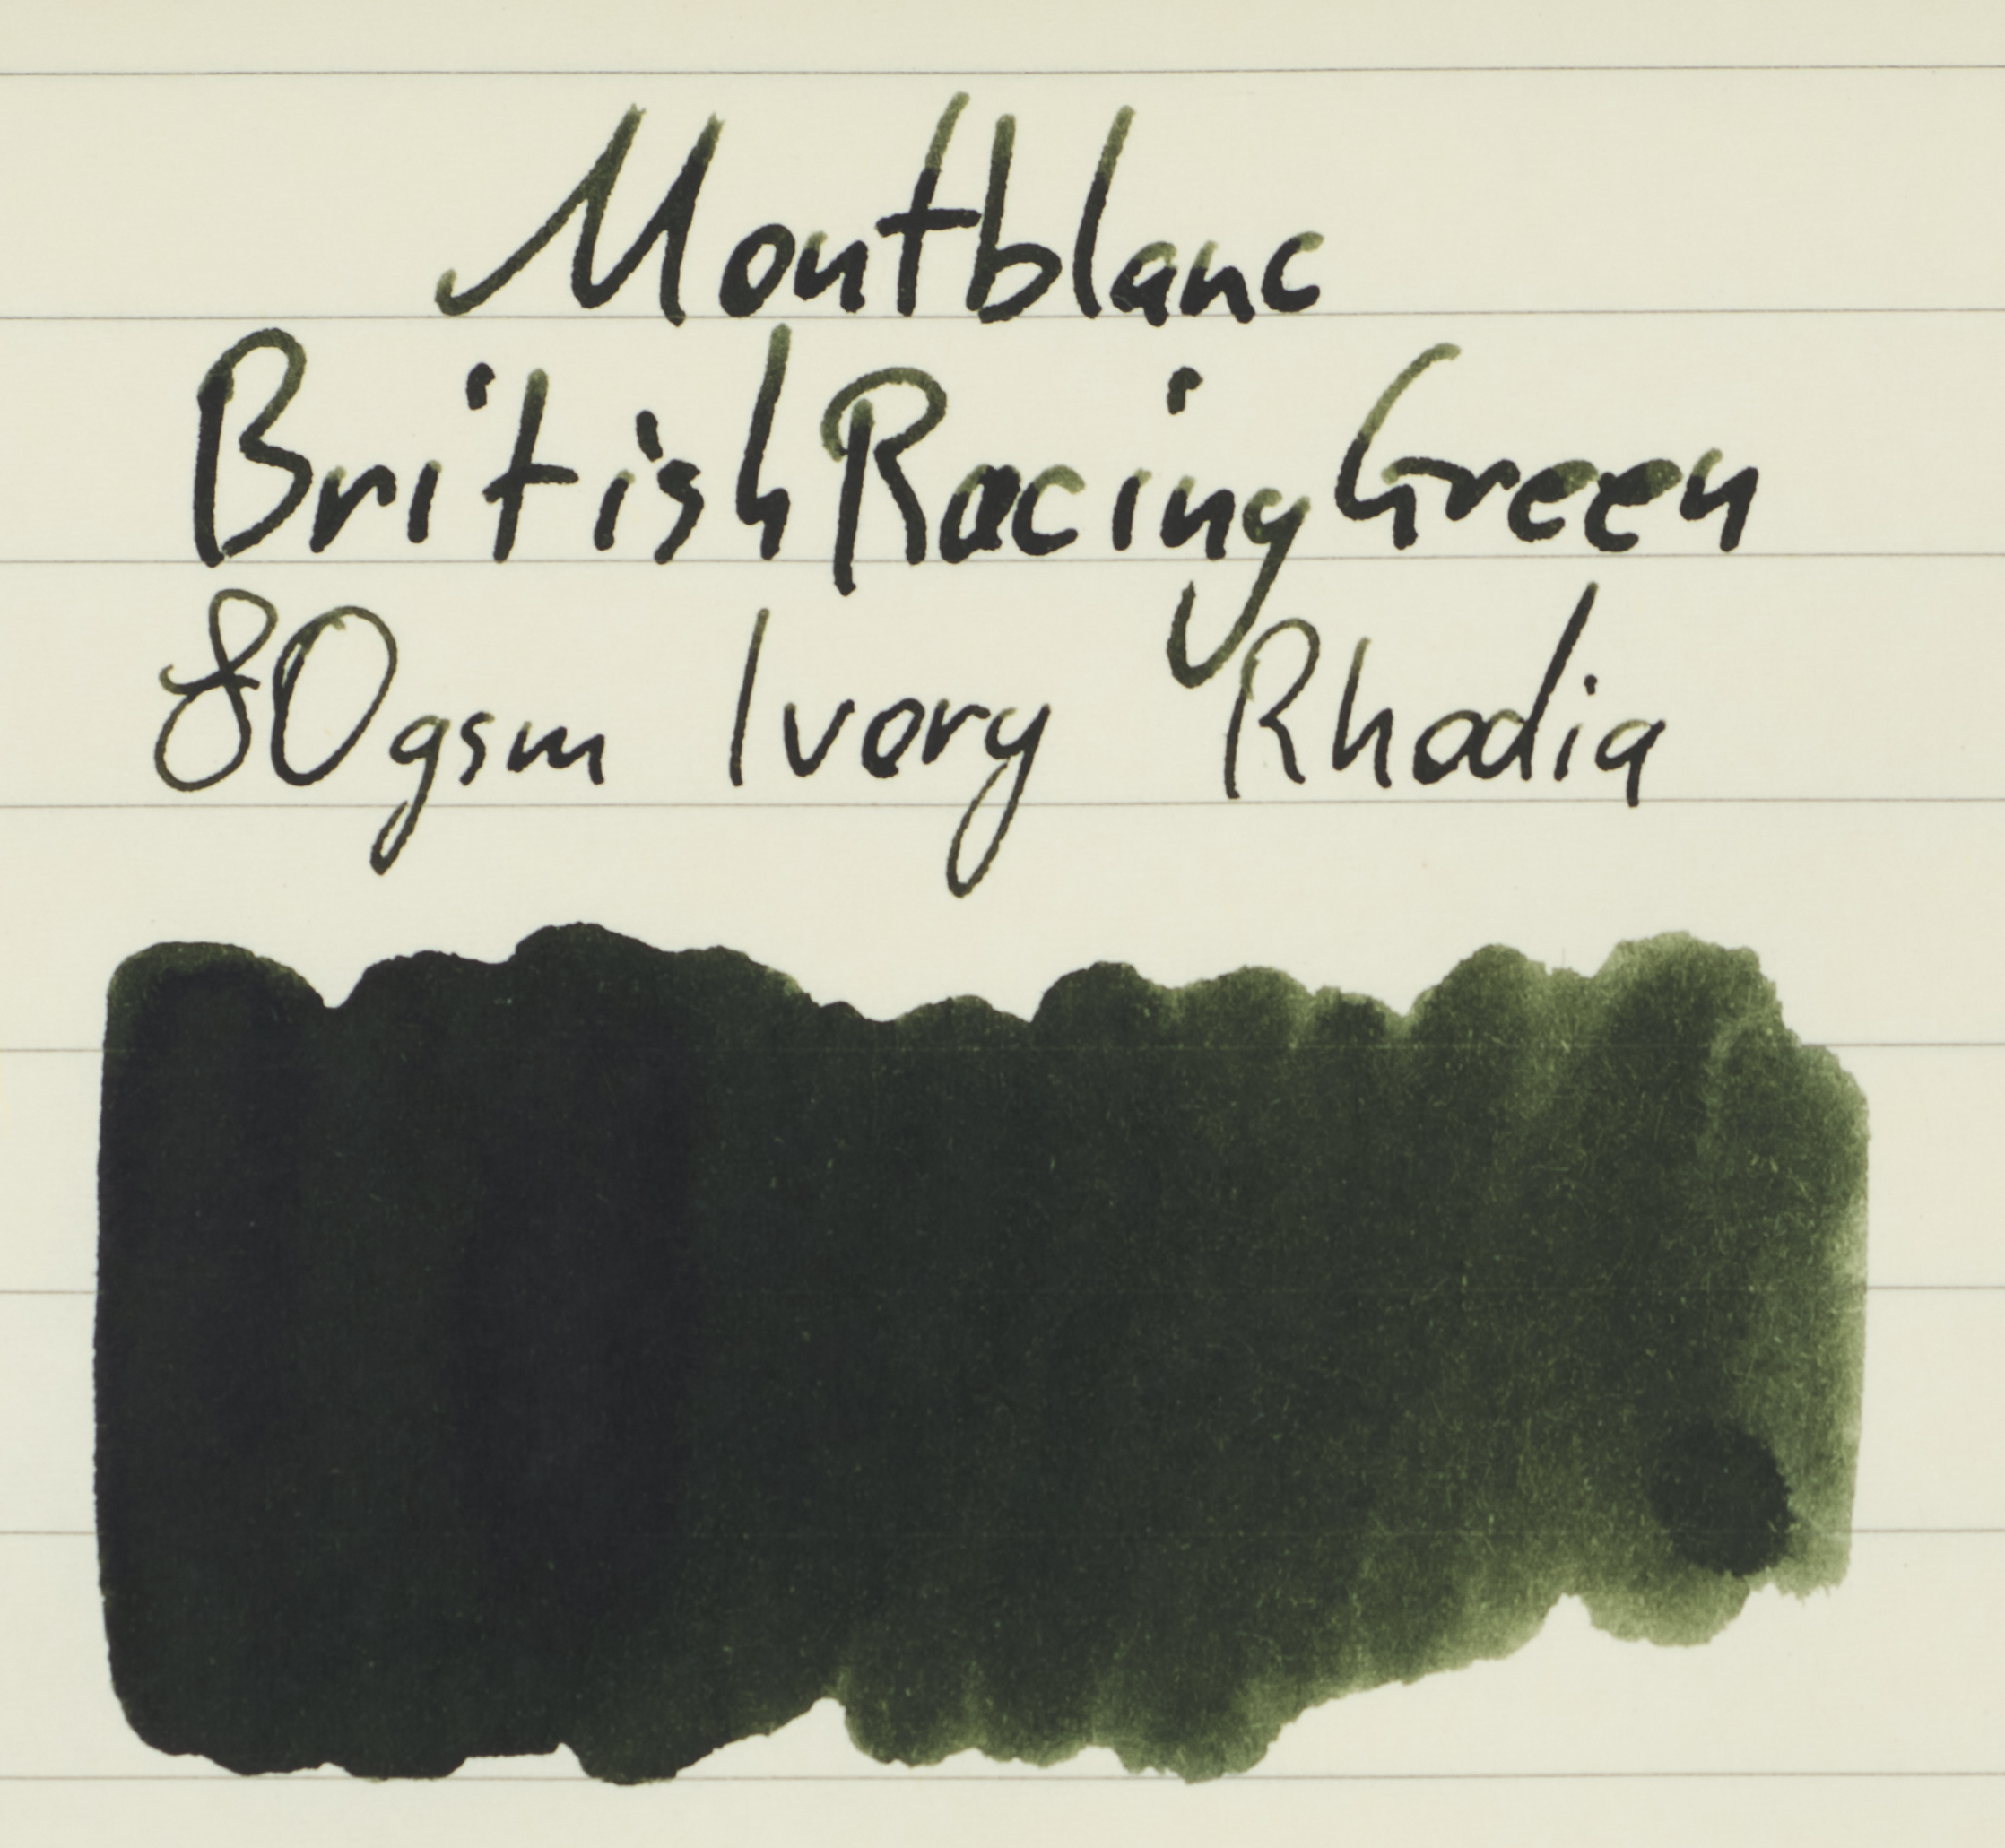 Montblanc
British Racing Green
80gsm Ivory Rhodia